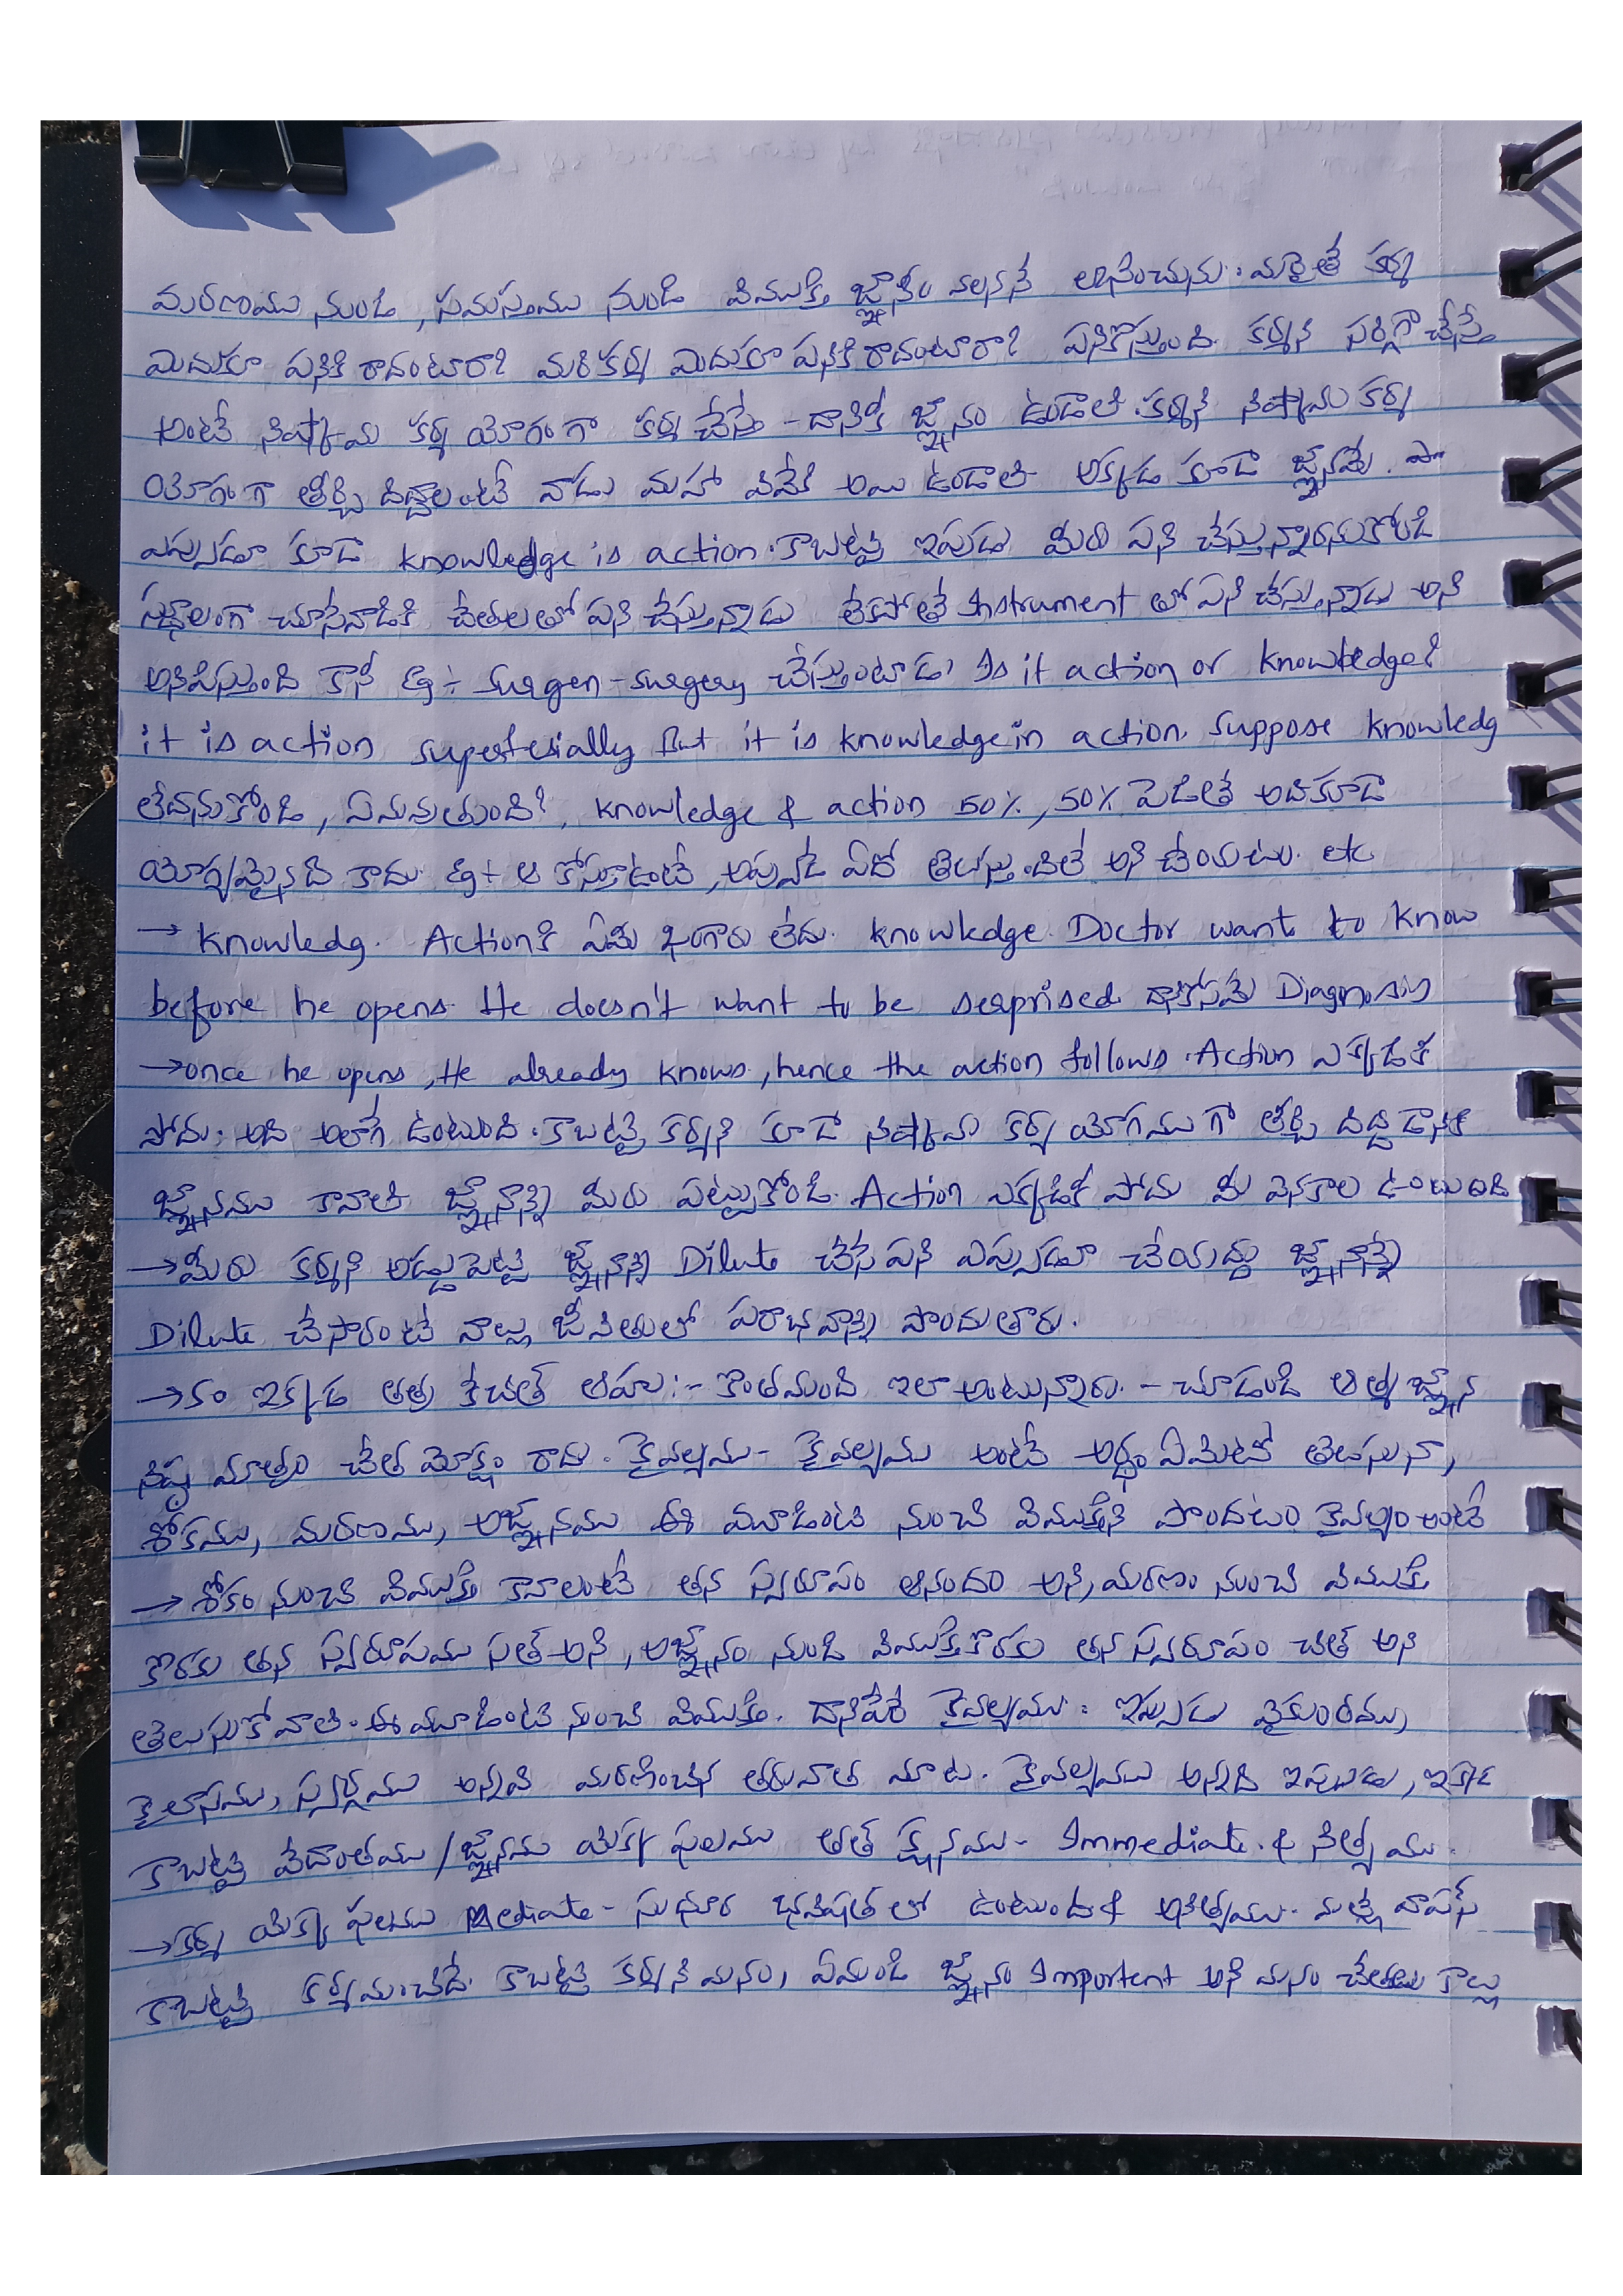 మరణము నుండి, సమస్తము నుండి విముక్తి జ్ఞానం వలననే లభించును. మరైతే కర్మ
ఎందుకూ పనికి రాదంటారా? మరి కర్మ ఎందుకూ పనికి రాదంటారా? పనికొస్తుంది. కర్మని సరిగ్గా చేస్తే
అంటే నిష్కామ కర్మ యోగంగా కర్మ చేస్తే - దానికీ జ్ఞానం ఉండాలి. కర్మని నిష్కామ కర్మ
యోగంగా తీర్చి దిద్దాలంటే వాడు మహా వివేకి అయి ఉండాలి అక్కడ కూడా జ్ఞానమే.
ఎప్పుడూ కూడా knowledge is action. కాబట్టి ఇపుడు మీరు పని చేస్తున్నారనుకోండి
స్థూలంగా చూసేవాడికి చేతులతో పని చేస్తున్నాడు లేకపోతే Instrument తో పని చేస్తున్నాడు అని
అనిపిస్తుంది కానీ Eg ÷ Surgen - surgery చేస్తుంటాడు. Is it action or knowledge?
it is action superferially But it is knowledge in action. Suppose knowledg
లేదనుకోండి, ఏమవుతుంది?, knowledge & action 50%, 50% పెడితే అదికూడా
యోగ్యమైనది కాదు. Eg ÷ ఆ కోస్తూఉంటే, అప్పుడే ఏదో తెలుస్తుందిలే అని చేయటం. etc
→ Knowledg. Action కి ఏమీ భంగారు లేదు. knowledge. Doctor want to know
before he opens. He doesn't want to be serprised. దానికోసమే Diagnosis
→ once he opens, He already knows, hence the action follows. Action ఎక్కడికీ
పోదు. అది అలాగే ఉంటుంది. కాబట్టి కర్మని కూడా నిష్కామ కర్మ యోగముగా తీర్చి దిద్దడానికి
జ్ఞానము కావాలి జ్ఞానాన్ని మీరు పట్టుకోండి. Action ఎక్కడికీ పోదు మీ వెనకాల ఉంటుంది
→ మీరు కర్మని అడ్డుపెట్టి జ్ఞానాన్ని Dilute చేసే పని ఎప్పుడూ చేయద్దు జ్ఞానాన్ని
Dilute చేసారంటే వాల్లు జీవితంలో పరాభవాన్ని పొందుతారు.
→ ఇక్కడ తత్ర కేచిత్ ఆహుః :- కొంతమంది ఇలా అంటున్నారు. - చూడండి ఆత్మ జ్ఞాన
నిష్ఠ మాత్రం చేత మోక్షం రాదు. కైవల్యము - కైవల్యము అంటే అర్థం ఏమిటో తెలుసునా,
శోకము, మరణము, అజ్ఞానము ఈ మూడింటి నుంచి విముక్తిని పొందటం కైవల్యం అంటే
→ శోకం నుంచి విముక్తి కావాలంటే తన స్వరూపం ఆనందం అని, మరణం నుంచి విముక్తి
కొరకు తన స్వరూపము సత్ అని, అజ్ఞానం నుండి విముక్తి కొరకు తన స్వరూపం చిత్ అని
తెలుసుకోవాలి. ఈ మూడింటి నుంచి విముక్తి. దానిపేరే కైవల్యము. ఇప్పుడు వైకుంఠము,
కైలాసము, స్వర్గము అన్నవి మరణించిన తరువాత మాట. కైవల్యము అన్నది ఇప్పుడు, ఇక్కడే
కాబట్టి వేదాంతము / జ్ఞానము యొక్క ఫలము తత్ క్షణము - Immediate. & నిత్యము.
→ కర్మ యొక్క ఫలము Mediate - సుధూర భవిష్యత్ లో ఉంటుంది & అనిత్యము. మళ్లీ వాపస్
కాబట్టి కర్మమంచిదే. కాబట్టి కర్మని మనం, ఏమండి జ్ఞానం Important అని మనం చేతులు కాల్లు